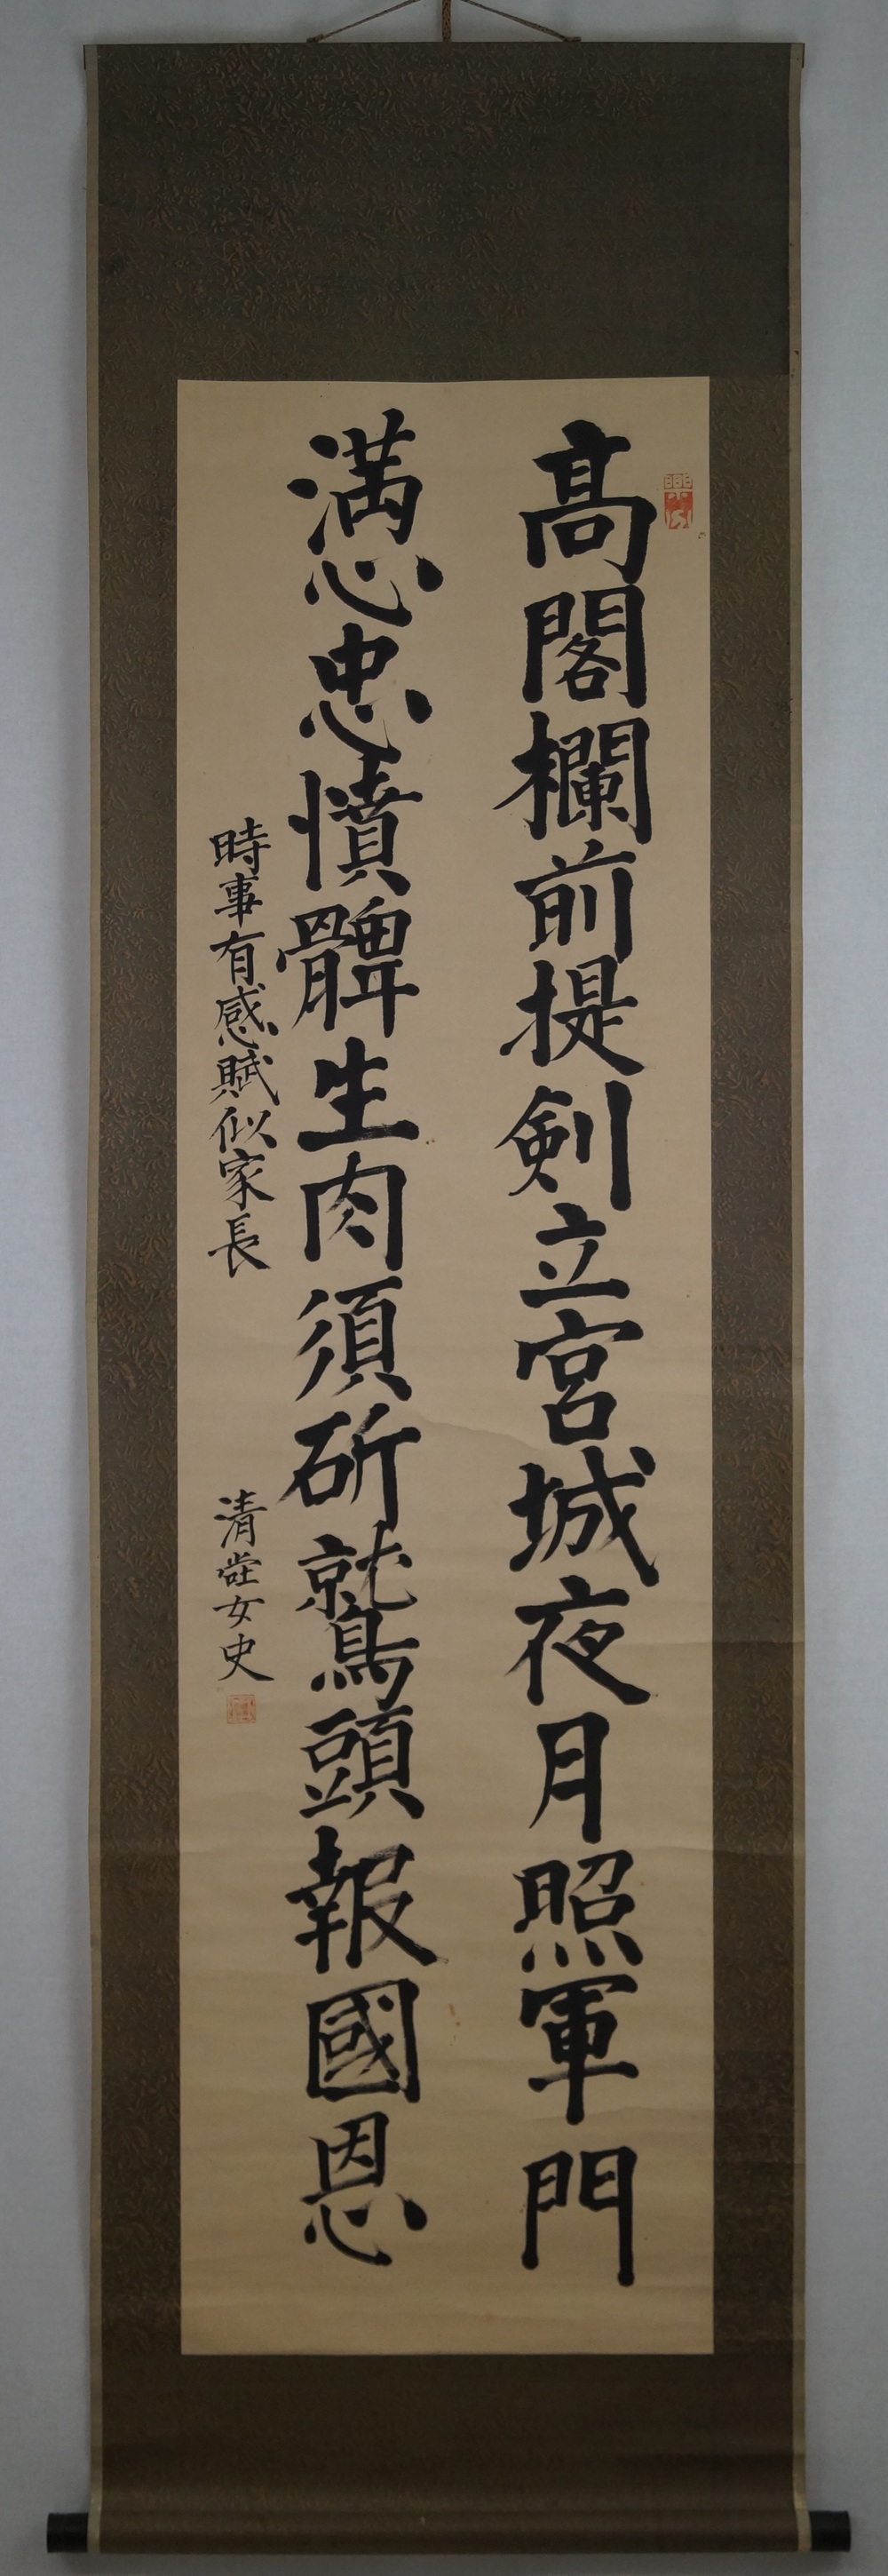 高閣欄前提剣立宮城夜月照軍門
満心忠憤髀生肉須斫鷲頭報國恩
時事有感賦似家長
清　女史